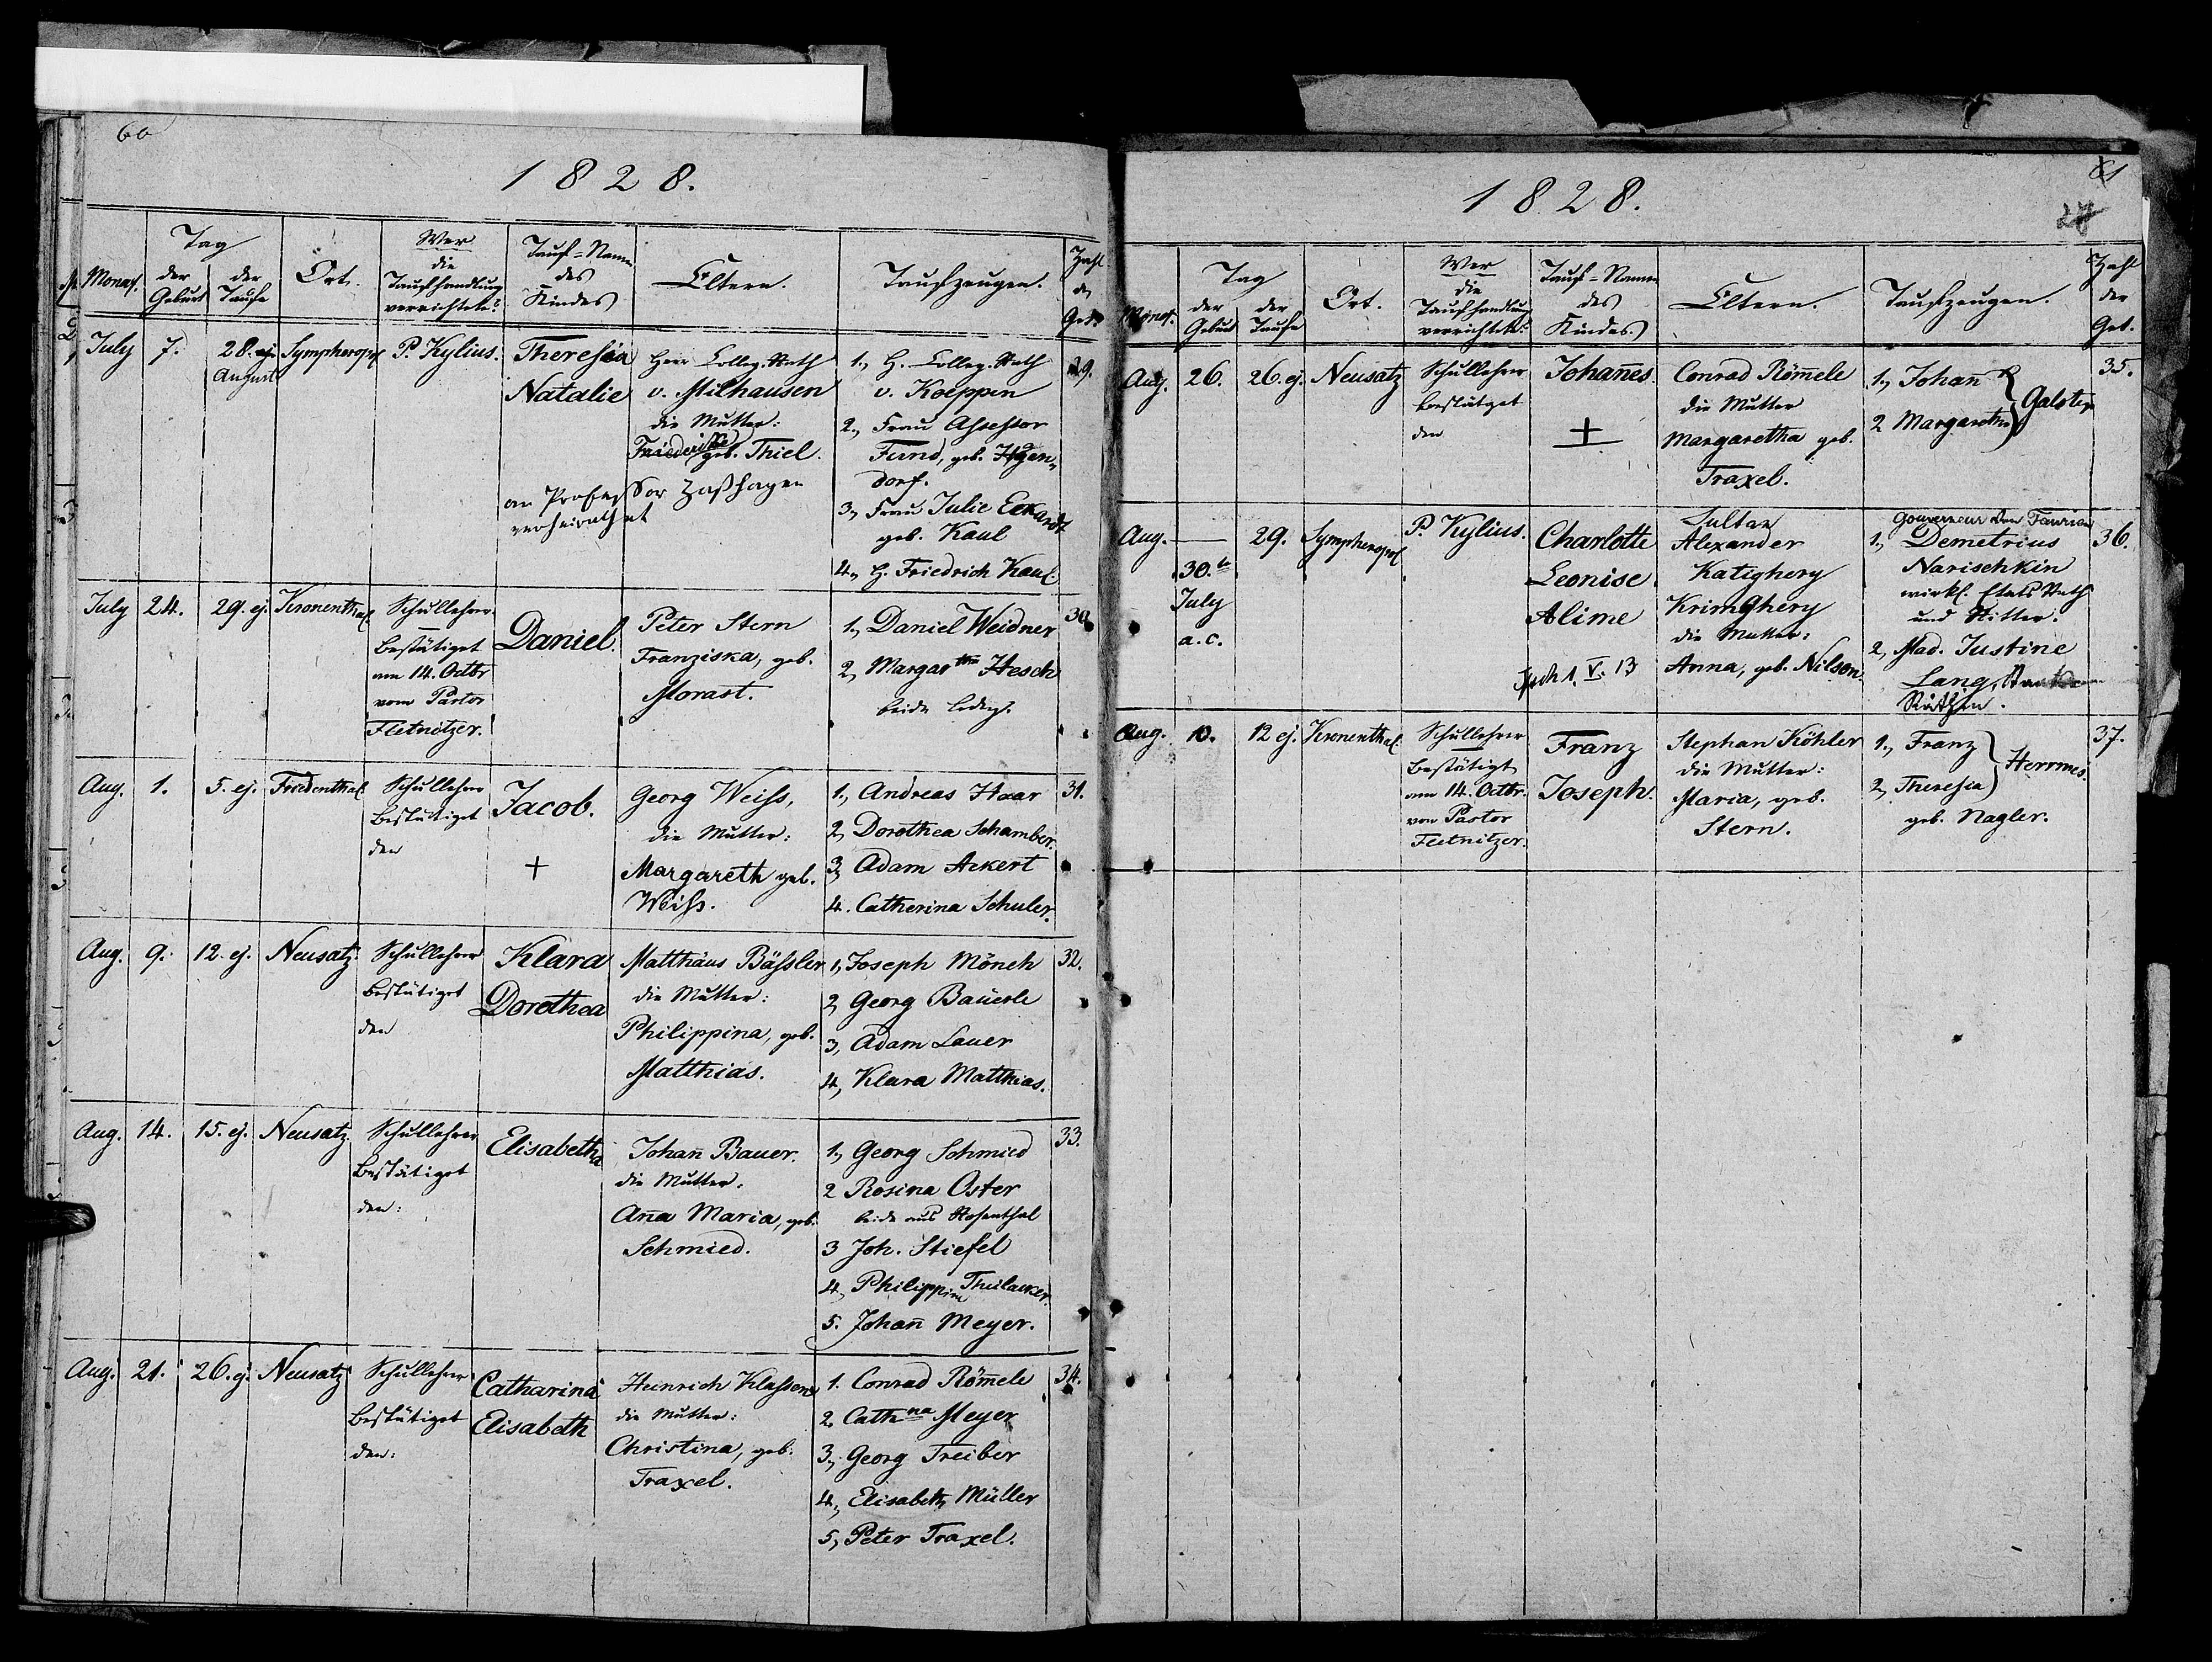 60
1828.
Monat.
Tag
der Geburt
der Taufe
Ort.
Wer
die
Taufhandlung
verrichtete?
Tauf=Name
des
Kindes
Eltern.
Taufzeugen.
Zahl
der
Geb.
July 7. 28. ej. Sympheropol P. Kylius. Theresia Herr Colleg. Rath 1., H. Colleg. Rath 29.
August Natalie v. Milhausen v. Koeppen
die Mutter: 2., Frau Assessor
Friederike geb. Thiel. Fund, geb.
dorf.
an Professor Zaßhagen
verheirathet
3., Frau Julie Eckardt
geb. Kaul
4., H. Friedrich Kaul.
July 24. 29. ej. Kronenthal Schullehrer Daniel. Peter Stern 1., Daniel Weidner 30
Bestätiget Franziska, geb. 2, Margartha Hesch
am 14. Octbr Morast. beide ledig.
vom Pastor
Fletnitzer.
Aug. 1. 5. ej. Friedenthal Schullehrer Jacob. Georg Weiss, 1., Andreas Haar 31.
Bestätiget + die Mutter: 2, Dorothea Schamber.
den Margareth geb. 3, Adam Ackert
Weiss. 4. Catherina Schuler.
Aug. 9. 12. ej. Neusatz. Schullehrer Klara Matthäus Bässler 1, Joseph Mönch 32.
Bestätiget Dorothea die Mutter: 2, Georg Bäuerle
den Philippina, geb. 3, Adam Lauer
Matthias. 4, Klara Matthias.
Aug. 14. 15. ej. Neusatz. Schullehrer Elisabetha Johan̄ Bauer. 1., Georg Schmied 33.
Bestätiget die Mutter. 2 Rosina Oster
den: An̄a Maria, geb. beide aus Rosenthal
Schmied. 3 Joh. Stiefel
4, Philippine Theilacker.
5. Johan̄ Meyer.
Aug. 21. 26. ej. Neusatz Schullehrer Catharina Heinrich Klassen 1. Conrad Röm̄ele 34.
Bestätiget Elisabeth die Mutter: 2, Cathna Meyer
den: Christina, geb. 3., Georg Treiber
Traxel. 4., Elisabeth Müller
5, Peter Traxel.
61
27
1828.
Monat.
Tag
der Geburt
der Taufe
Ort.
Wer
die
Taufhandlung
verrichtete?
Tauf=Name
des
Kindes
Eltern.
Taufzeugen.
Zahl
der
Get.
Aug. 26. 26. ej. Neusatz Schullehrer Johan̄es. Conrad Röm̄ele 1., Johan̄ 35.
bestätget + die Mutter 2 Margaretha Galster
den Margaretha geb.
Traxel.
Aug. — 29. Sympheropol P. Kylius. Charlotte Sultan Gouverneur von Taurien 36.
30.te Leonise Alexander 1., Demetrius
July Alime Katighery Narischkin
a. c. Krimghery wirkl. Etats Rath
die Mutter: und Ritter.
1. V. 13 Anna, geb. Nilson. 2, Mad. Justine
Lang,
Räthin.
Aug. 10. 12 ej. Kronenthal. Schullehrer Franz Stephan Köhler 1., Franz 37.
Bestätigt Joseph. die Mutter: 2, Theresia Hermes.
am 14. Octbr. Maria, geb. geb. Nagler.
von Pastor Stern.
Fletnitzer.